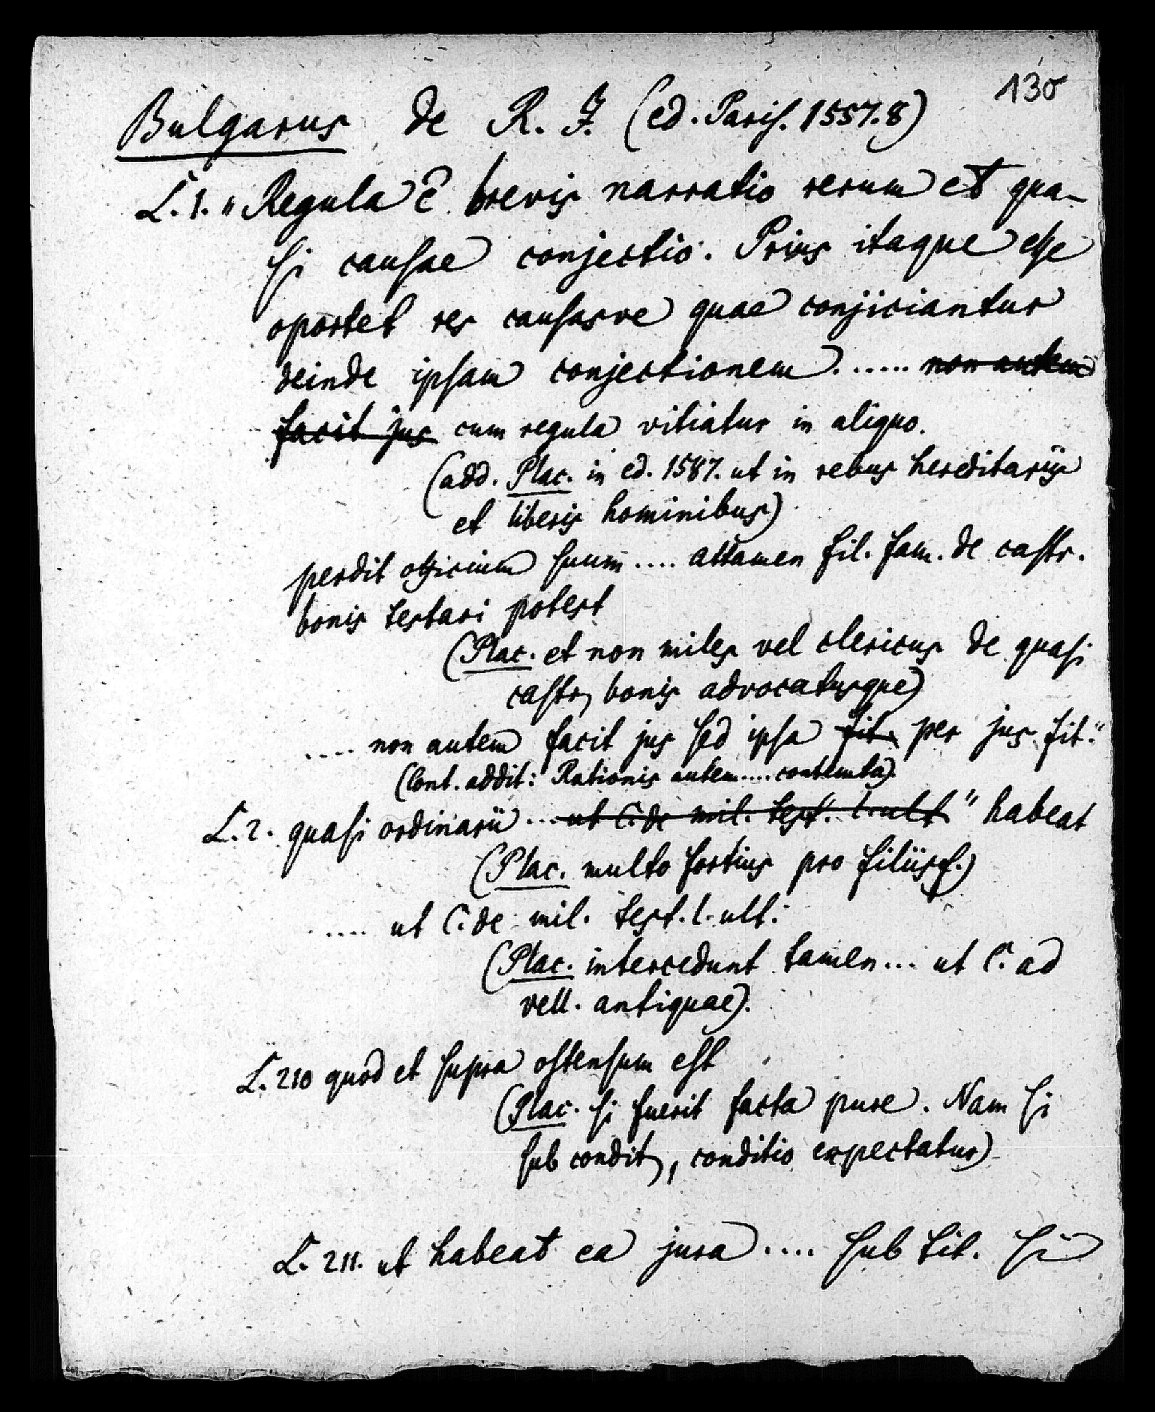 130
Bulgarus de R. J. (ed. Paris. 1557.8)
L. 1. "Regula ē brevis narratio rerum et qua-
si causae conjectio. Prius itaque esse
oportet res causasve quae conjiciantur
deinde ipsam conjectionem ...... non autem
facit jus cum regula vitiatur in aliquo.
(add. Plac. in ed. 1587. ut in rebus hereditariis
et liberis hominibus)
perdit officium suum .... attamen fil. fam. de castr.
bonis testari potest
(Plac. et non miles vel clericus de quasi
castr. bonis advocatusque)
.... non autem facit jus sed ipsa fit. per jus fit."
(Cont. addit: Rationis autem .... contemta)
L. 2. quasi ordinarii ... ut C. de mil. test. l. ult " habeat
(Plac. multo fortius pro filiis f.)
.... ut C. de mil. test. l. ult.
(Plac. intercedunt tamen ... ut C. ad
vell. antiquae).
L. 210 quod et supra ostensum est
(Plac. si fuerit facta pure. Nam si
sub condit, conditio expectatur)
L. 211. ut habeat ea jura .... sub tit. si